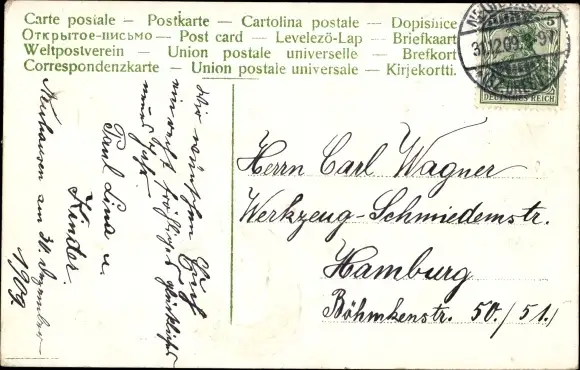 Carte postale — Postkarte — Cartolina postale — Dopisnice
Открытое-письмо — Post card — Levelezö-Lap — Briefkaart
Weltpostverein — Union postale universelle — Brefkort
Correspondenzkarte — Union postale universale — Kirjekortti.
31.12.09. 9-
5
DEUTSCHES REICH
Herrn Carl Wagner
Werkzeug-Schmiedemstr.
Hamburg
Böhmkenstr. 50./51./
Wir wünschen Euch
ein recht fröhliches glückliches
neues Jahr.
Paul Lina u.
Kinder.
Neuhausen am 30. Dezember
1909